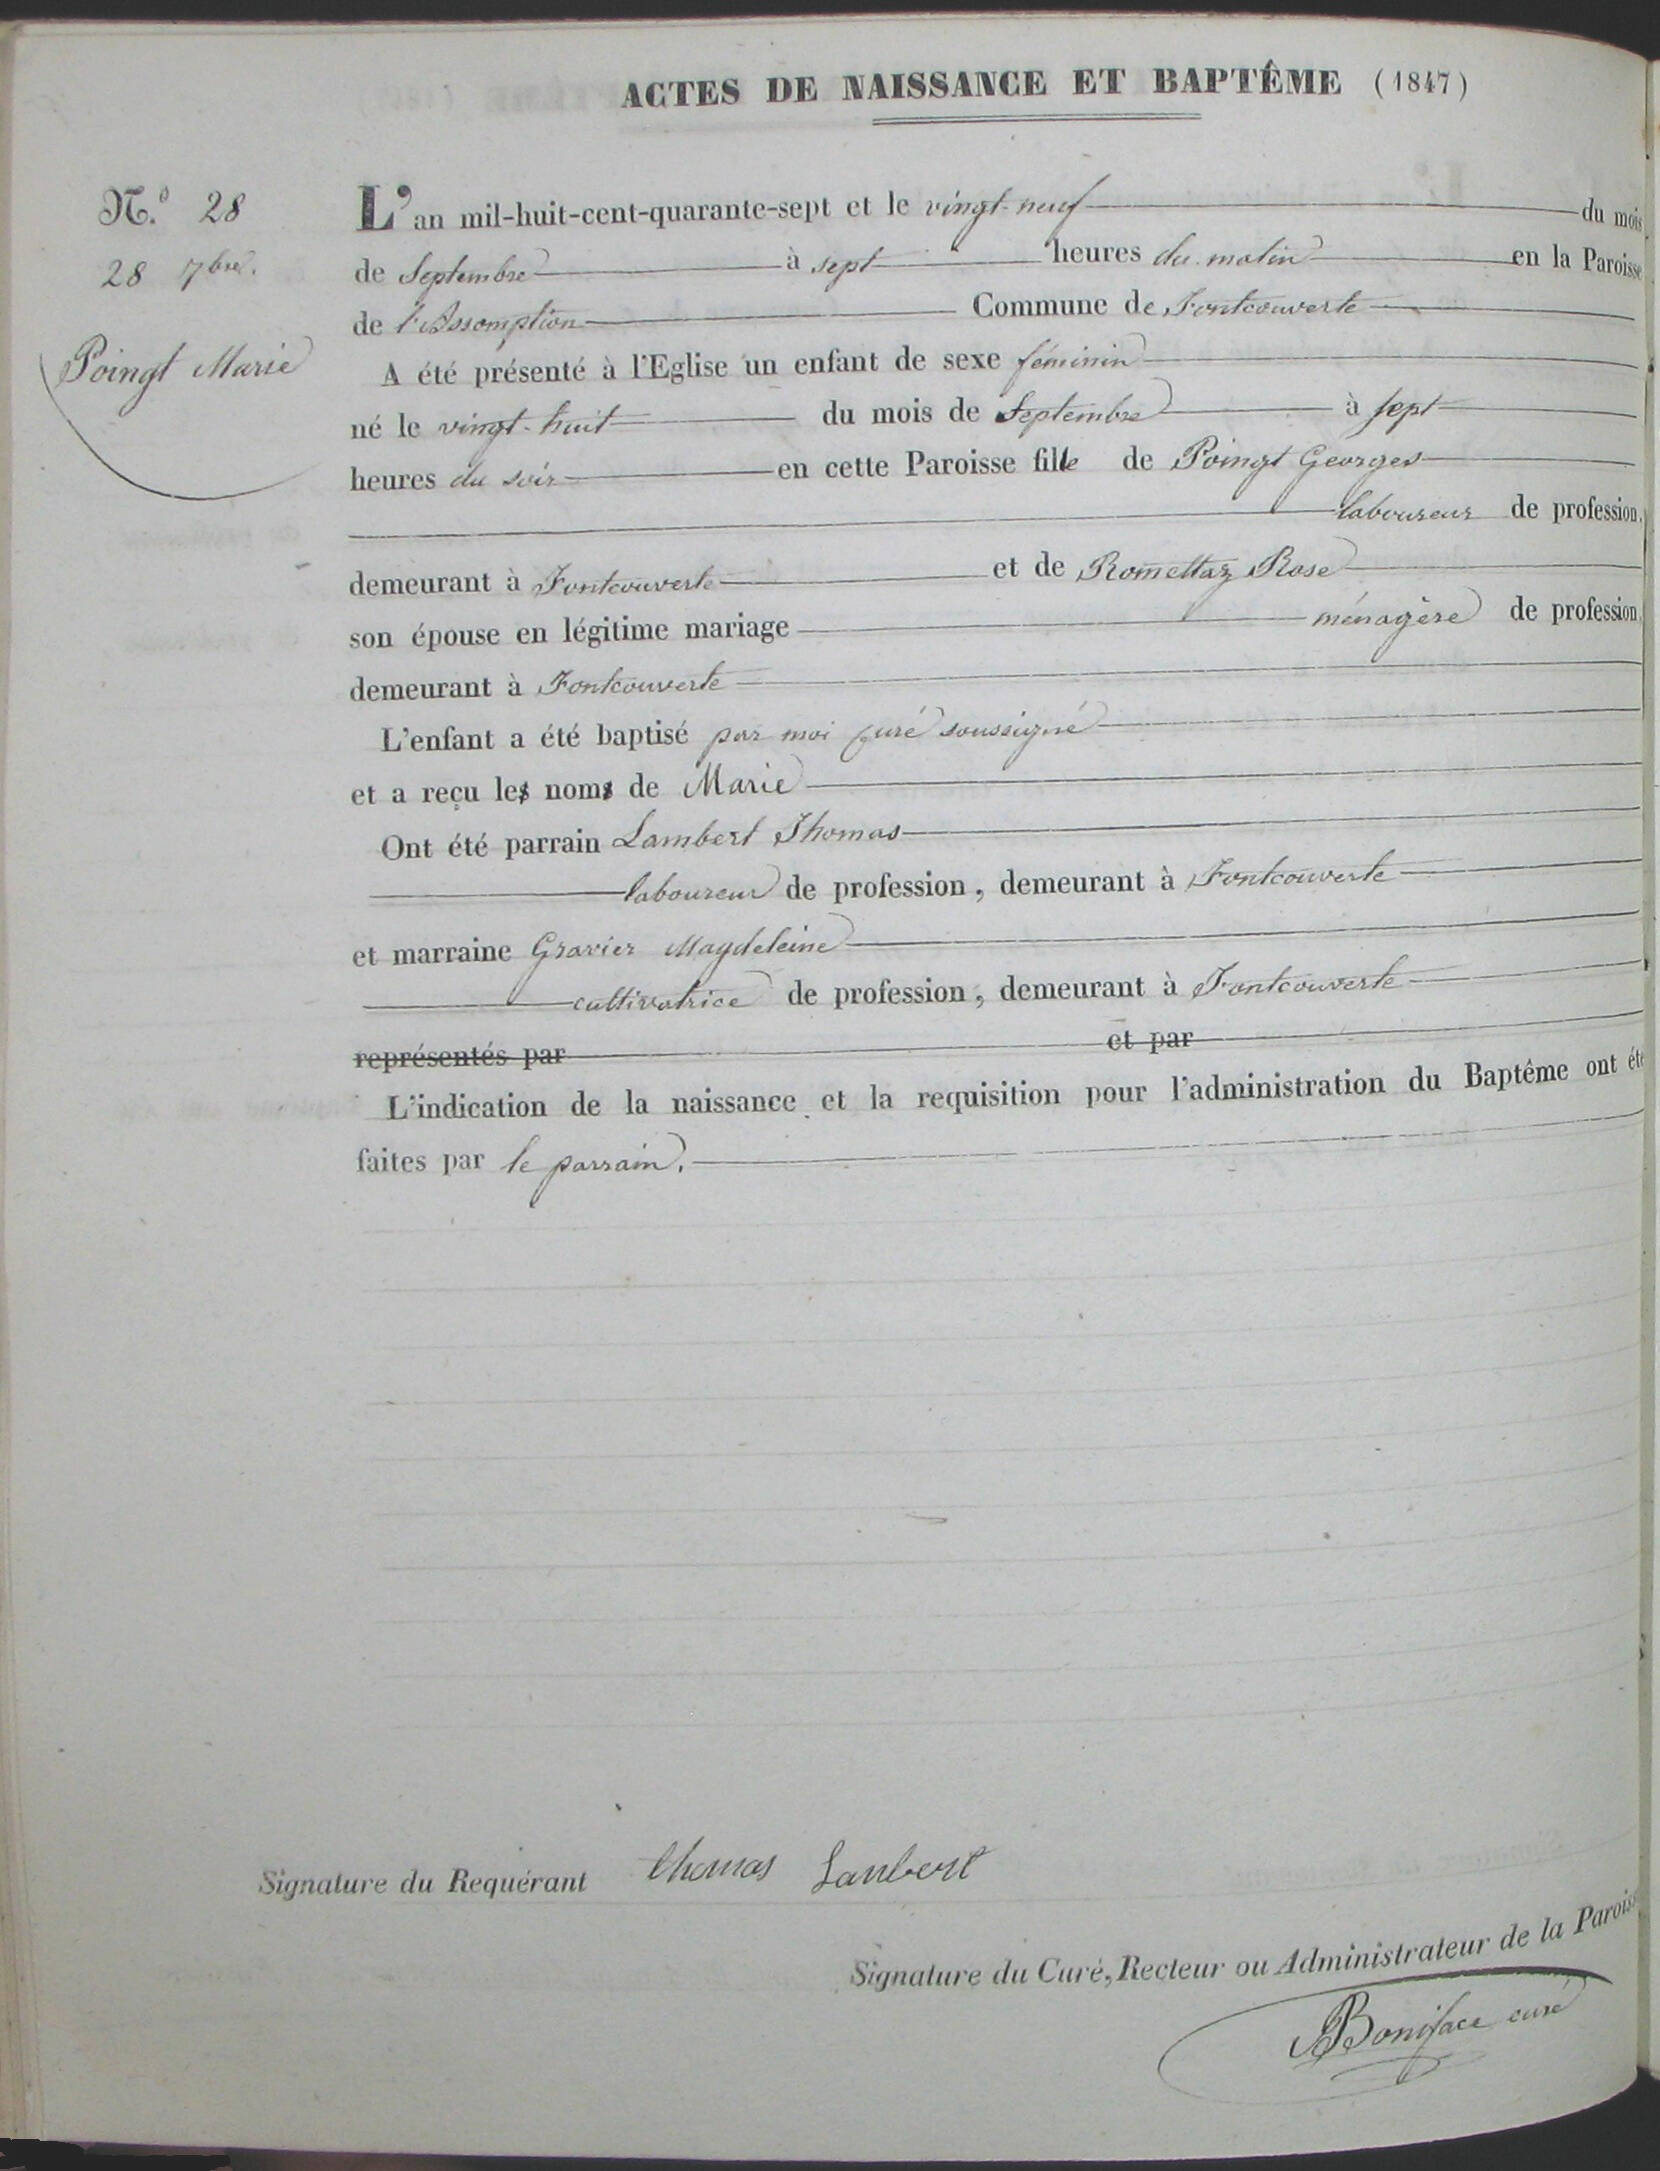 ACTES DE NAISSANCE ET BAPTÊME (1847)
N.º 28
28 7bre.
Poingt Marie
L'an mil-huit-cent-quarante-sept et le vingt-neuf du mois
de Septembre à sept heures du matin en la Paroisse
de l'Assomption Commune de Fontcouverte
A été présenté à l'Eglise un enfant de sexe féminin
né le vingt-huit du mois de Septembre à sept
heures du soir en cette Paroisse fille de Poingt Georges
laboureur de profession,
demeurant à Fontcouverte et de Romettaz Rose
son épouse en légitime mariage ménagère de profession,
demeurant à Fontcouverte
L'enfant a été baptisé par moi curé soussigné
et a reçu les noms de Marie
Ont été parrain Lambert Thomas
laboureur de profession, demeurant à Fontcouverte
et marraine Gravier Magdeleine
cultivatrice de profession, demeurant à Fontcouverte
représentés par et par
L'indication de la naissance et la requisition pour l'administration du Baptême ont été
faites par le parrain.
Signature du Requérant thomas Lanbert
Signature du Curé, Recteur ou Administrateur de la Paroisse
Boniface curé